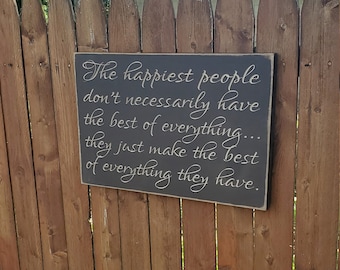 The happiest people
don't necessarily have
the best of everything...
they just make the best
of everything they have.